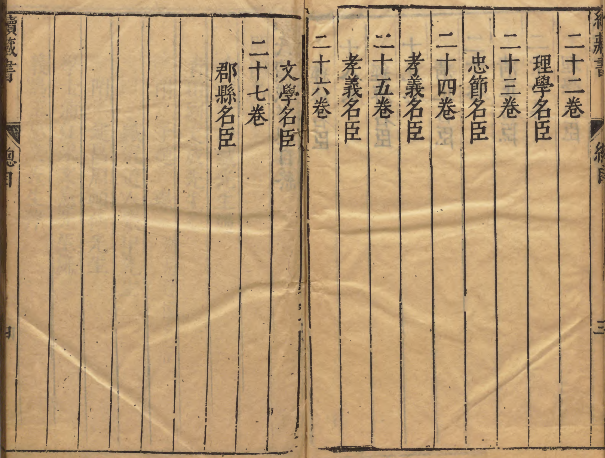 二十二卷
理學名臣
二十三卷
忠節名臣
二十四卷
孝義名臣
二十五卷
孝義名臣
二十六卷
文學名臣
二十七卷
郡縣名臣
續藏書
總目
三
續藏書
總目
四